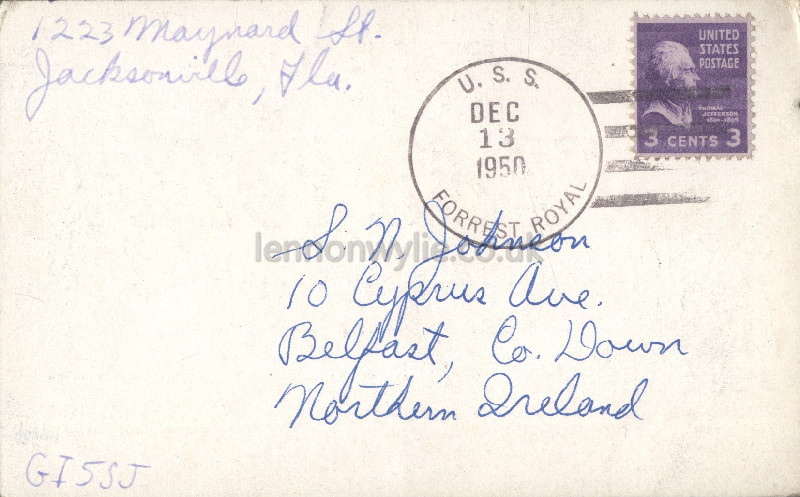 1223 Maynard St.
Jacksonville, Fla.
U. S. S.
DEC
13
1950
FORREST ROYAL
UNITED
STATES
POSTAGE
THOMAS
JEFFERSON
1801-1809
3 CENTS 3
lennonwylie.co.uk
S. N. Johnson
10 Cyprus Ave.
Belfast, Co. Down
Northern Ireland
GI5SJ